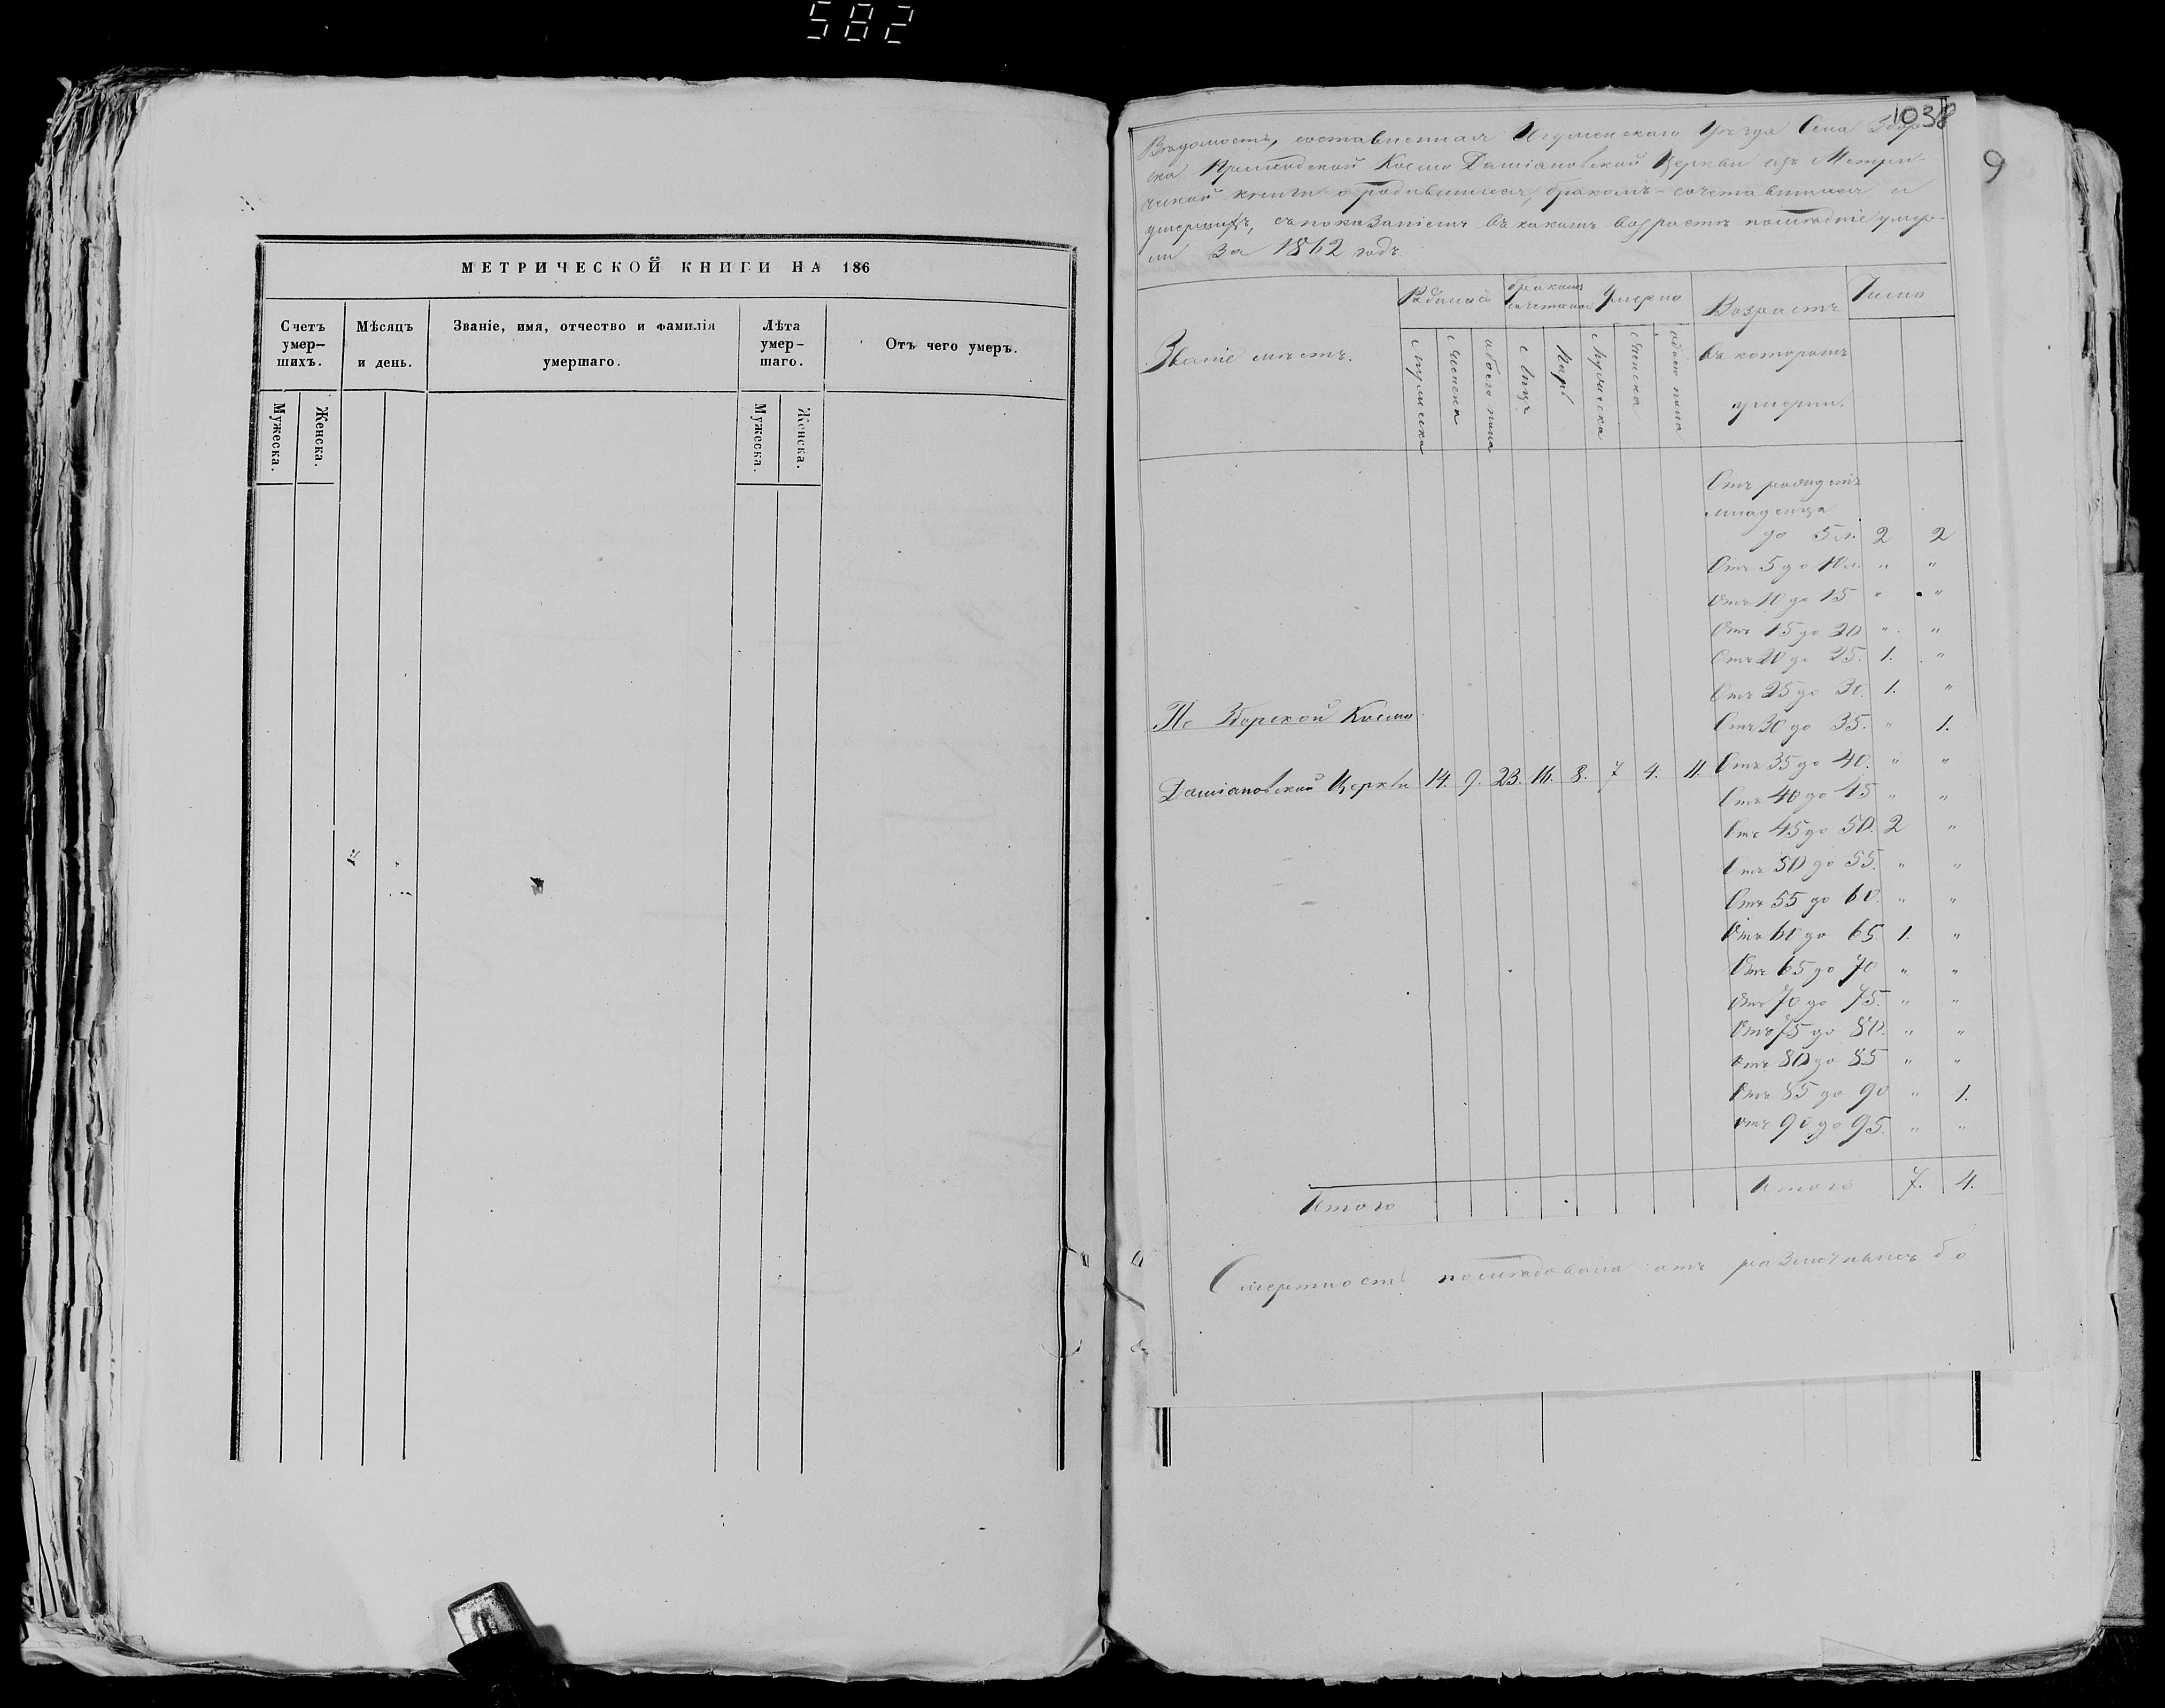 582
МЕТРИЧЕСКОЙ КНИГИ НА 186
Счетъ умер–шихъ.
Мѣсяцъ и день.
Званіе, имя, отчество и фамилія умершаго.
Лѣта умер–шаго.
Отъ чего умеръ.
Мужеска.
Женска.
Мужеска.
Женска.
1038
9
Вѣдомость, составленная Игуменскаго Уѣзда Села Збор–
ска Приходской Космо Даміановской Церкви изъ Метри–
ческой книги о родившихся, бракомъ–сочетавшихся и
умершихъ, съ показаніемъ въ какомъ возрастѣ послѣдніе умер–
ли За 1862 годъ.
Званіе мѣстъ.
Родилось
Бракомъ сочеталось
Умерло
Возрастъ въ которомъ умерли.
Число
Мужеска
Женска
обоего пола
Лицъ
Паръ
Мужеска
Женска
обоего пола
Отъ рожденія
младенца
до 5 л. 2 2
Отъ 5 до 10 л. " "
Отъ 10 до 15 " "
Отъ 15 до 20 " "
Отъ 20 до 25. 1. "
Отъ 25 до 30. 1. "
По Зборской Космо
Отъ 30 до 35. " 1.
Даміановской Церкви 14. 9. 23. 16. 8. 7 4. 11.
Отъ 35 до 40. " "
Отъ 40 до 45 " "
Отъ 45 до 50. 2 "
Отъ 50 до 55. " "
Отъ 55 до 60. " "
Отъ 60 до 65 1. "
Отъ 65 до 70 " "
Отъ 70 до 75. " "
Отъ 75 до 80. " "
Отъ 80 до 85 " "
Отъ 85 до 90 " 1.
Отъ 90 до 95. " "
Итого
Итого 7. 4.
Смертность послѣдовала отъ различныхъ бо